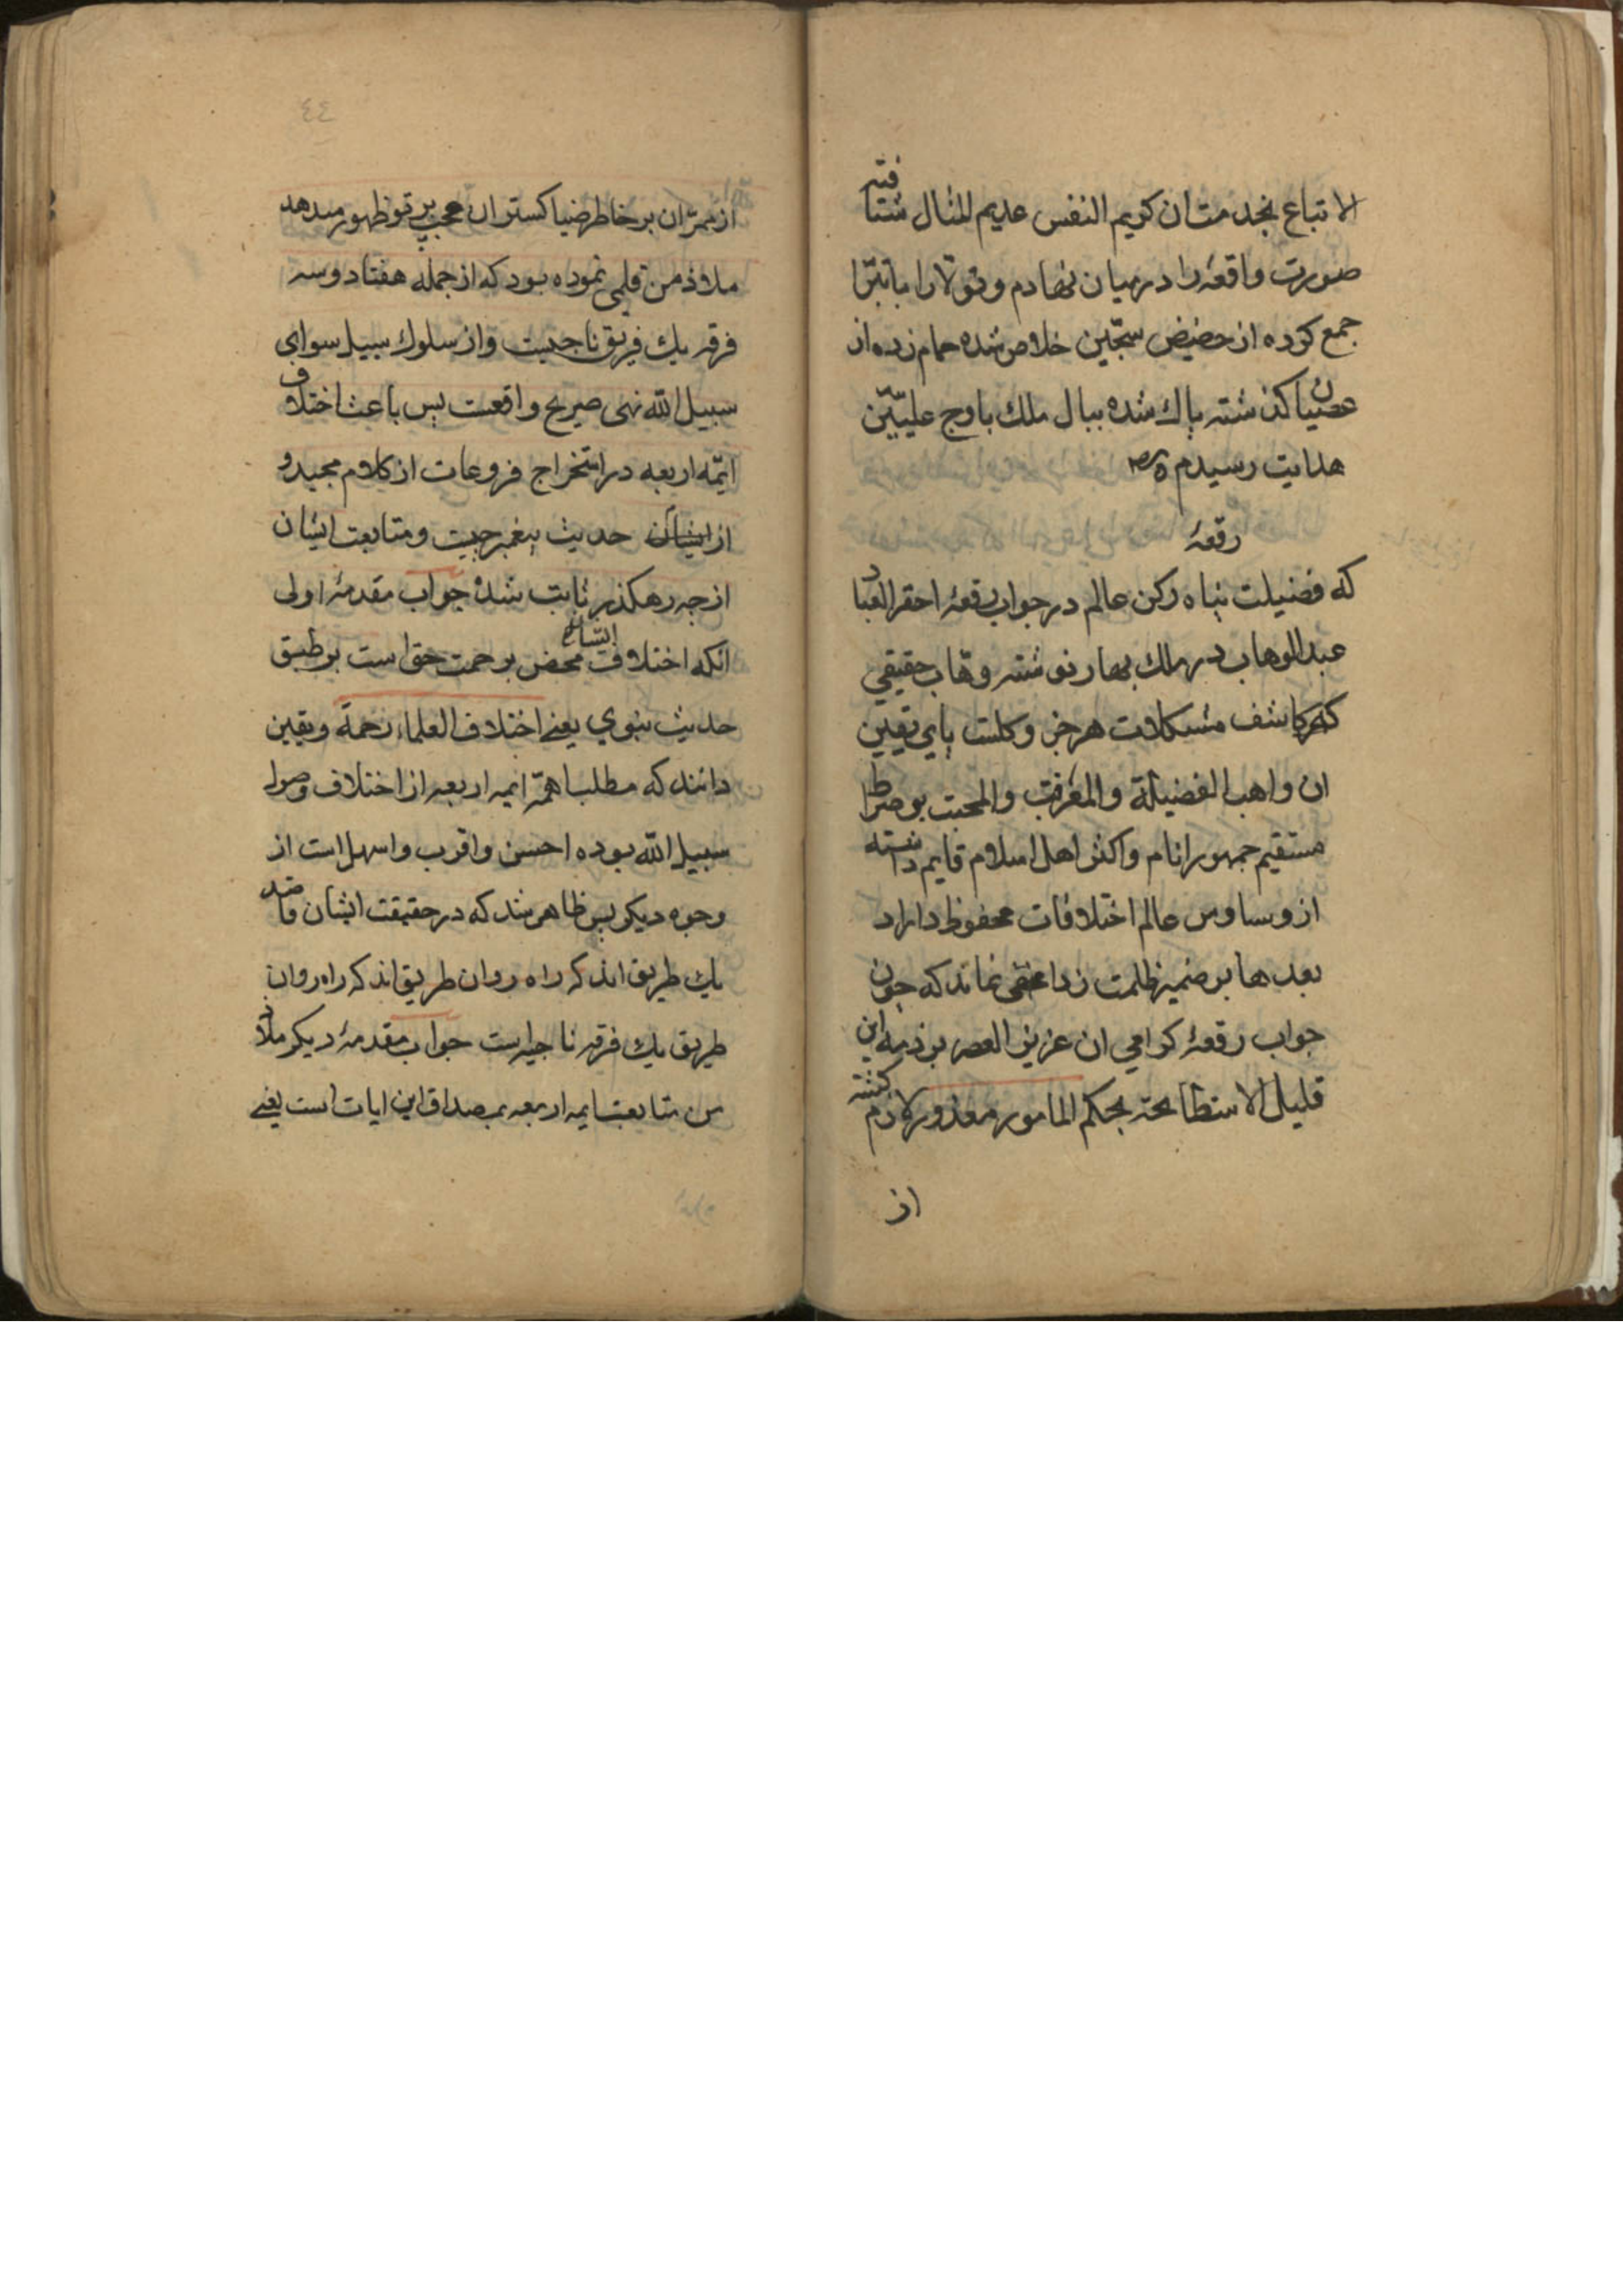 الاتباع بخدمت ان کریم النفس عدیم المثال شتافته
صورت واقعه را درمیان نهادم و تولارا باتبرّا
جمع کرده از حضیض سجّین خلاص شده حمام زده از
عصیان کذشته پاك شده ببال ملك باوج علیّین
هدایت رسیدم
رقعهٔ
که فضیلت پناه رکن عالم در جواب رقعهٔ احقر العباد
عبدالوهاب در ملك بهار نوشته وهاب حقیقی
که کاشف مشکلات هر جز و کلست پای یقین
ان واهب الفضیلة والمعرفت والمحبت بر صراط
مستقیم جمهور انام و اکثر اهل اسلام قایم داشته
از وساوس عالم اختلافات محفوظ داراد
بعد هابر ضمیر ظلمت زدا مخفی نماند که چون
جواب رقعهٔ کرامی ان عزیز العصر بر ذمه این
قلیل الاستطاعته بحکم المامور معذور لازم کشته
از
٤٤
از ممرّ ان بر خاطر ضیا کستر ان محب پرتو ظهور میدهد
ملاذ من قلمی نموده بود که از جمله هفتاد و سه
فرقه یك فریق ناجیست و از سلوك سبیل سوای
سبیل الله نهی صریح واقعست پس باعث اختلاف
ایمّه اربعه در استخراج فروعات از کلام مجید و
از ایشان حدیث پیغمبر چیست و متابعت ایشان
از چه رهکذر ثابت شده جواب مقدمهٔ اولی
انکه اختلاف ایشان محض رحمت حق است بر طبق
حدیث نبوی یعنے اختلاف العلماء رحمة و یقین
دانند که مطلب همّه ایمه اربعه از اختلاف وصول
سبیل الله بوده احسن و اقرب و اسهل است از
وجوه دیکر پس ظاهر شد که در حقیقت ایشان قاصد
یك طریق اند که راه روان طریق اند که راه روان
طریق یك فرقه ناجیه است جواب مقدمهٔ دیکر ملاذ
من متابعت ایمه اربعه بمصداق این ایات است یعنے